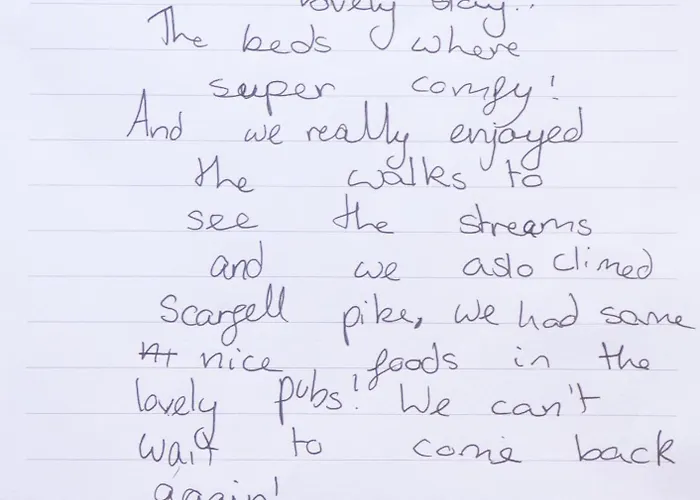 lovely stay..
The beds where
super comfy!
And we really enjoyed
the walks to
see the streams
and we aslo climed
Scargell pike, we had some
nice foods in the
lovely pubs! We can't
wait to come back
again!